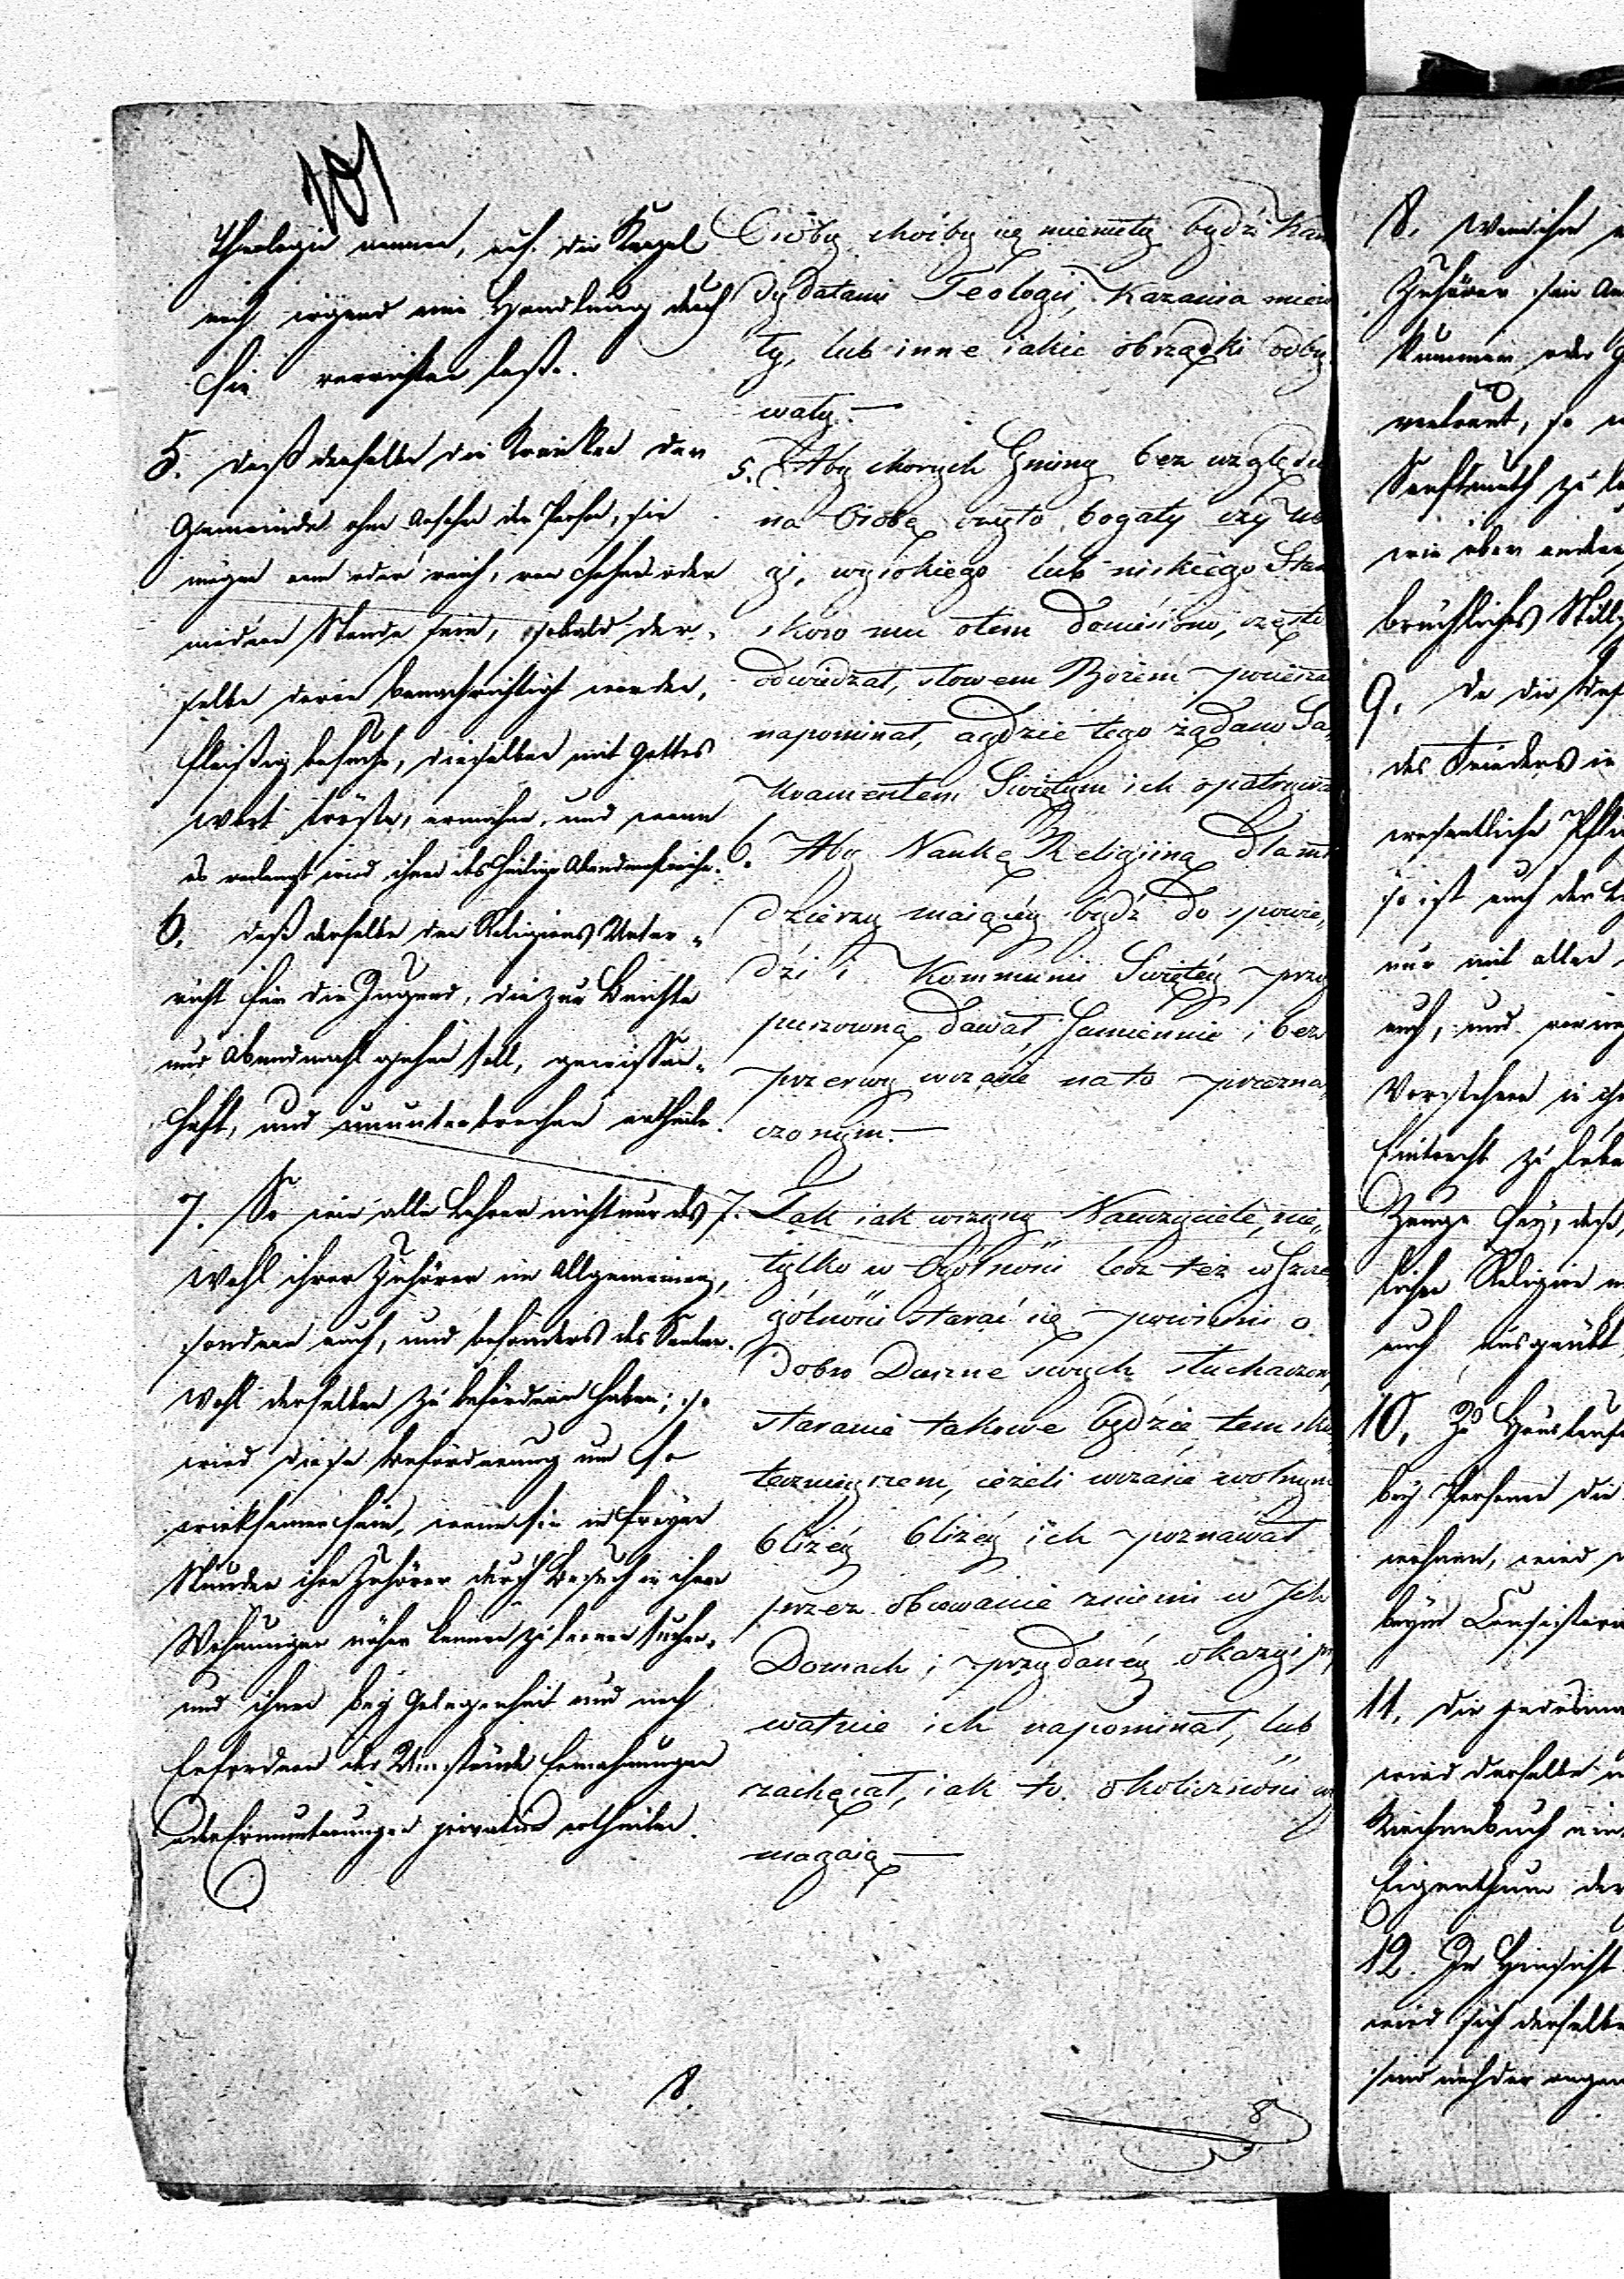 101
Theologie nennen, auf die Kanzel
noch irgend eine Handlung durch
sie verrichten lasse.
5. daß derselbe die Kranken der
Gemeinde ohne Ansehn der Person, sie
mögen arm oder reich, von hohem oder
niedern Stande sein, sobald der-
selbe davon benachrichtigt worden,
fleißig besuche, dieselben mit Gottes
Wort tröste, ermahne, und wenn
es verlangt wird ihnen das heilige Abendmahl reiche.
6. daß derselbe den Religions Unter-
richt für die Jugend, die zur Beichte
und Abendmahl gehen soll, gewissen-
haft, und ununterbrochen ertheile.
7. So wie alle Lehrer nicht nur das
Wohl ihrer Zuhörer im Allgemeinen,
sondern auch, und besonders das Seelen-
Wohl derselben zu befördern haben; so
wird diese Beförderung um so
wirksamer sein, wenn sie in freyen
Stunden ihre Zuhörer durch Besuch in ihren
Wohnungen näher kennen zu lernen suchen,
und ihnen bey Gelegenheit und nach
Erfordern der Umstände Ermahnungen
oder Ermunterungen privatim ertheilen.
8.
Osoby choćby się mieniły bydź Kan
dydatami Teologii, Kazania miewa
ły, lub inne iakie obrządki odby
wały.—
5. Aby chorych Gminy bez względu
na Osobę, czyto bogaty czy ubo
gi, wysokiego lub niskiego Stanu
skoro mu otem doniesiono, często
odwiedzał, słowem Bożem pocieszał
napominał, agdzie tego żądano Sa
kramentem Swiętym ich opatrywał
6. Aby Naukę Religiiną dla mło
dzierzy maiącéy bydź do spowie,,
dzi i Kommunii Swiętéy przy
puszczoną dawał, Sumiennie i bez
przerwy wczasie na to przezna,,
czonym.—
7. Tak iak wszyscy Nauczyciele, nie,,
tylko w Ogólności lecz też w Szcze
gólności starać się powinni o
Dobro Duszne swych słuchaczow,
staranie takowe będzie tem sku
tecznieyszem, ieżeli wczasie wolnym
bliżéy bliżéy ich poznawał
przez obcowanie zniemi w Ich
Domach i przydanéy okazyi pry
watnie ich napominał, lub
zachęcał, iak to okoliczności wy
magaią—
8
8. Wenn ihm
Zuhörer sein
Kummer oder
vertraut, so
Sanftmuth zu
wie eben
brüchliches Still
9. Da die
des Friedens in
wesentliche
so ist auch der
nur mit allen
auch, und
Vorstehern in
Eintracht zu leben
Zeuge sey, daß
lichen Religion
auch ausgeübt
10. Zu Haustaufen
bey Personen die
wohnen, wird
beym Consistorio
11. Die jedesmal
wird derselbe
Kirchenbuch
Eigenthum der
12. In Hinsicht
wird sich derselbe